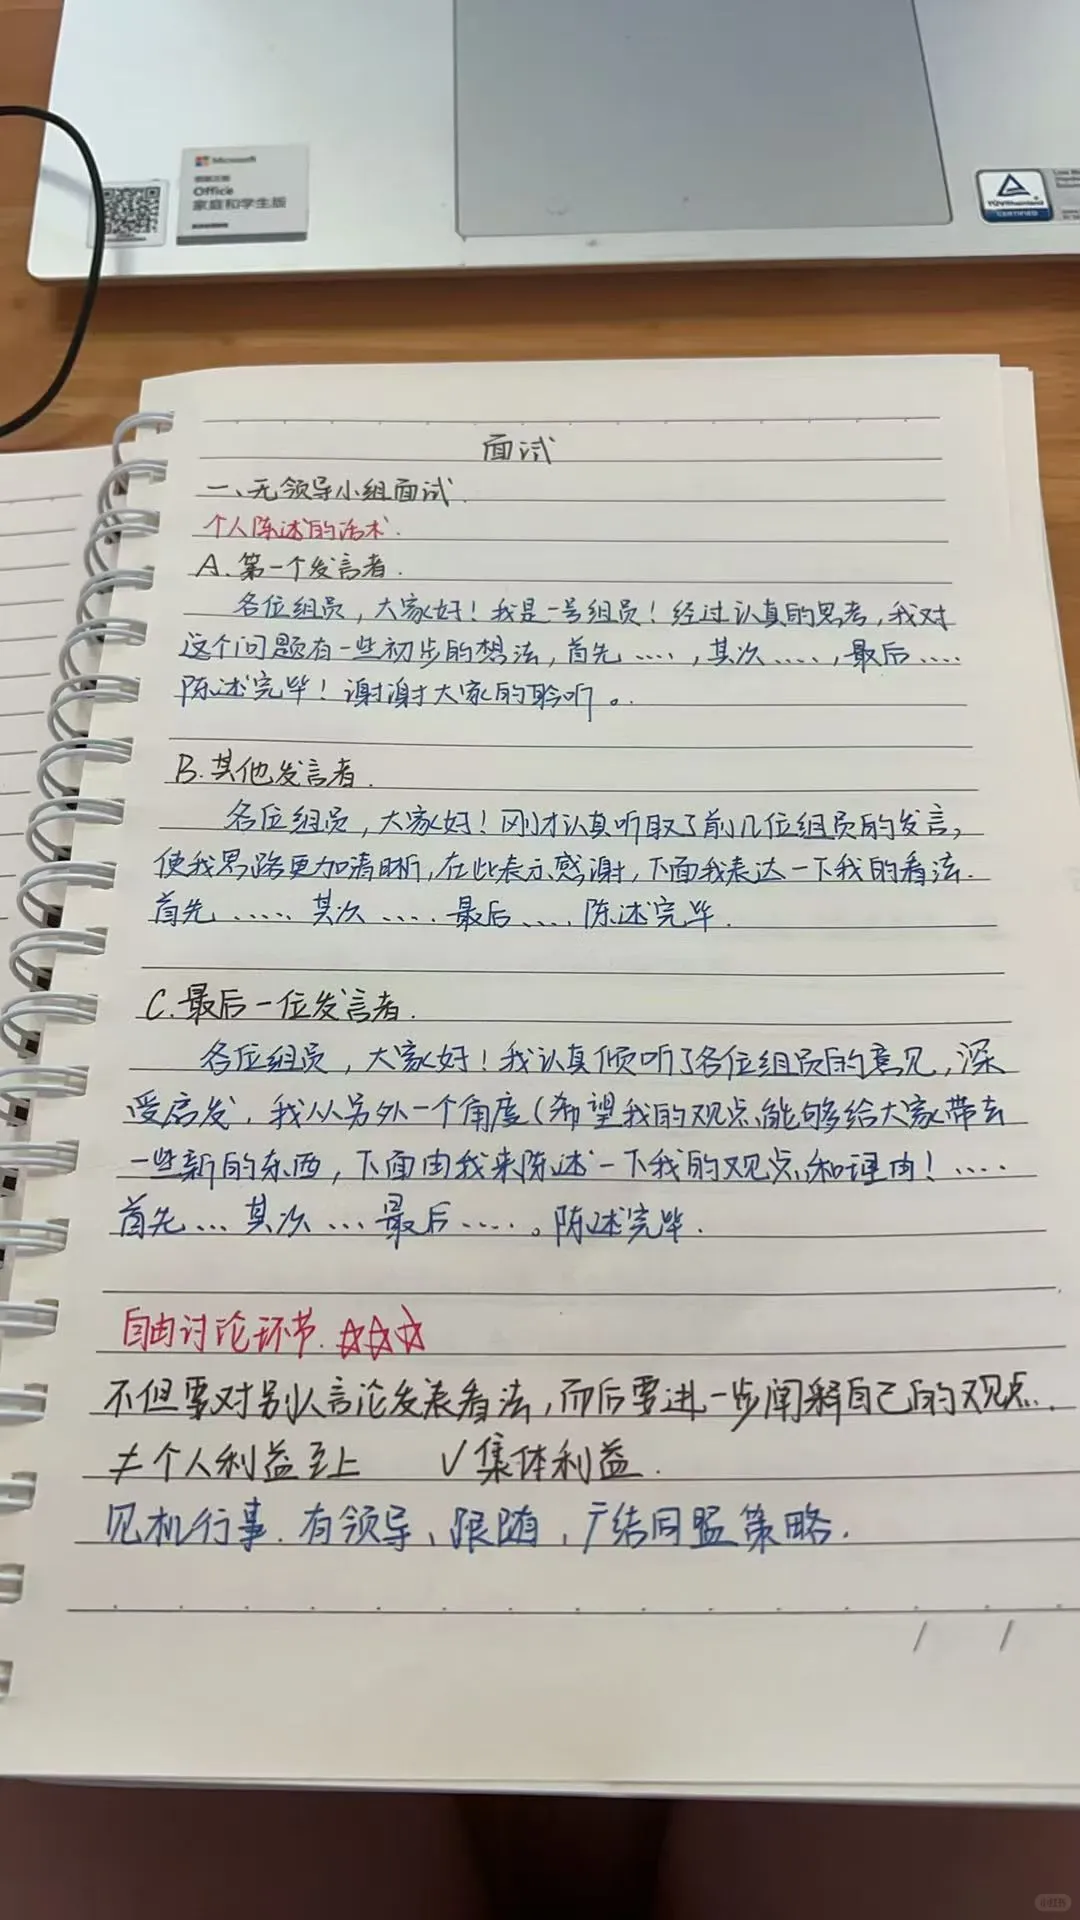 Microsoft
Office
家庭和学生版
TÜVRheinland
CERTIFIED
面试
一、无领导小组面试.
个人陈述的话术.
A. 第一个发言者.
各位组员，大家好！我是一号组员！经过认真的思考，我对
这个问题有一些初步的想法，首先....，其次....，最后....
陈述完毕！谢谢大家的聆听。.
B. 其他发言者.
各位组员，大家好！刚才认真听取了前几位组员的发言，
使我思路更加清晰，在此表示感谢，下面我表达一下我的看法.
首先..... 其次.... 最后.... 陈述完毕.
C. 最后一位发言者.
各位组员，大家好！我认真倾听了各位组员的意见，深
受启发，我从另外一个角度（希望我的观点能够给大家带去
一些新的东西，下面由我来陈述一下我的观点和理由！....
首先... 其次... 最后....。陈述完毕.
自由讨论环节. ☆☆☆
不但要对别人言论发表看法，而后要进一步阐释自己的观点.
≠个人利益至上 √集体利益.
见机行事. 有领导、跟随，广结同盟策略.
/ /